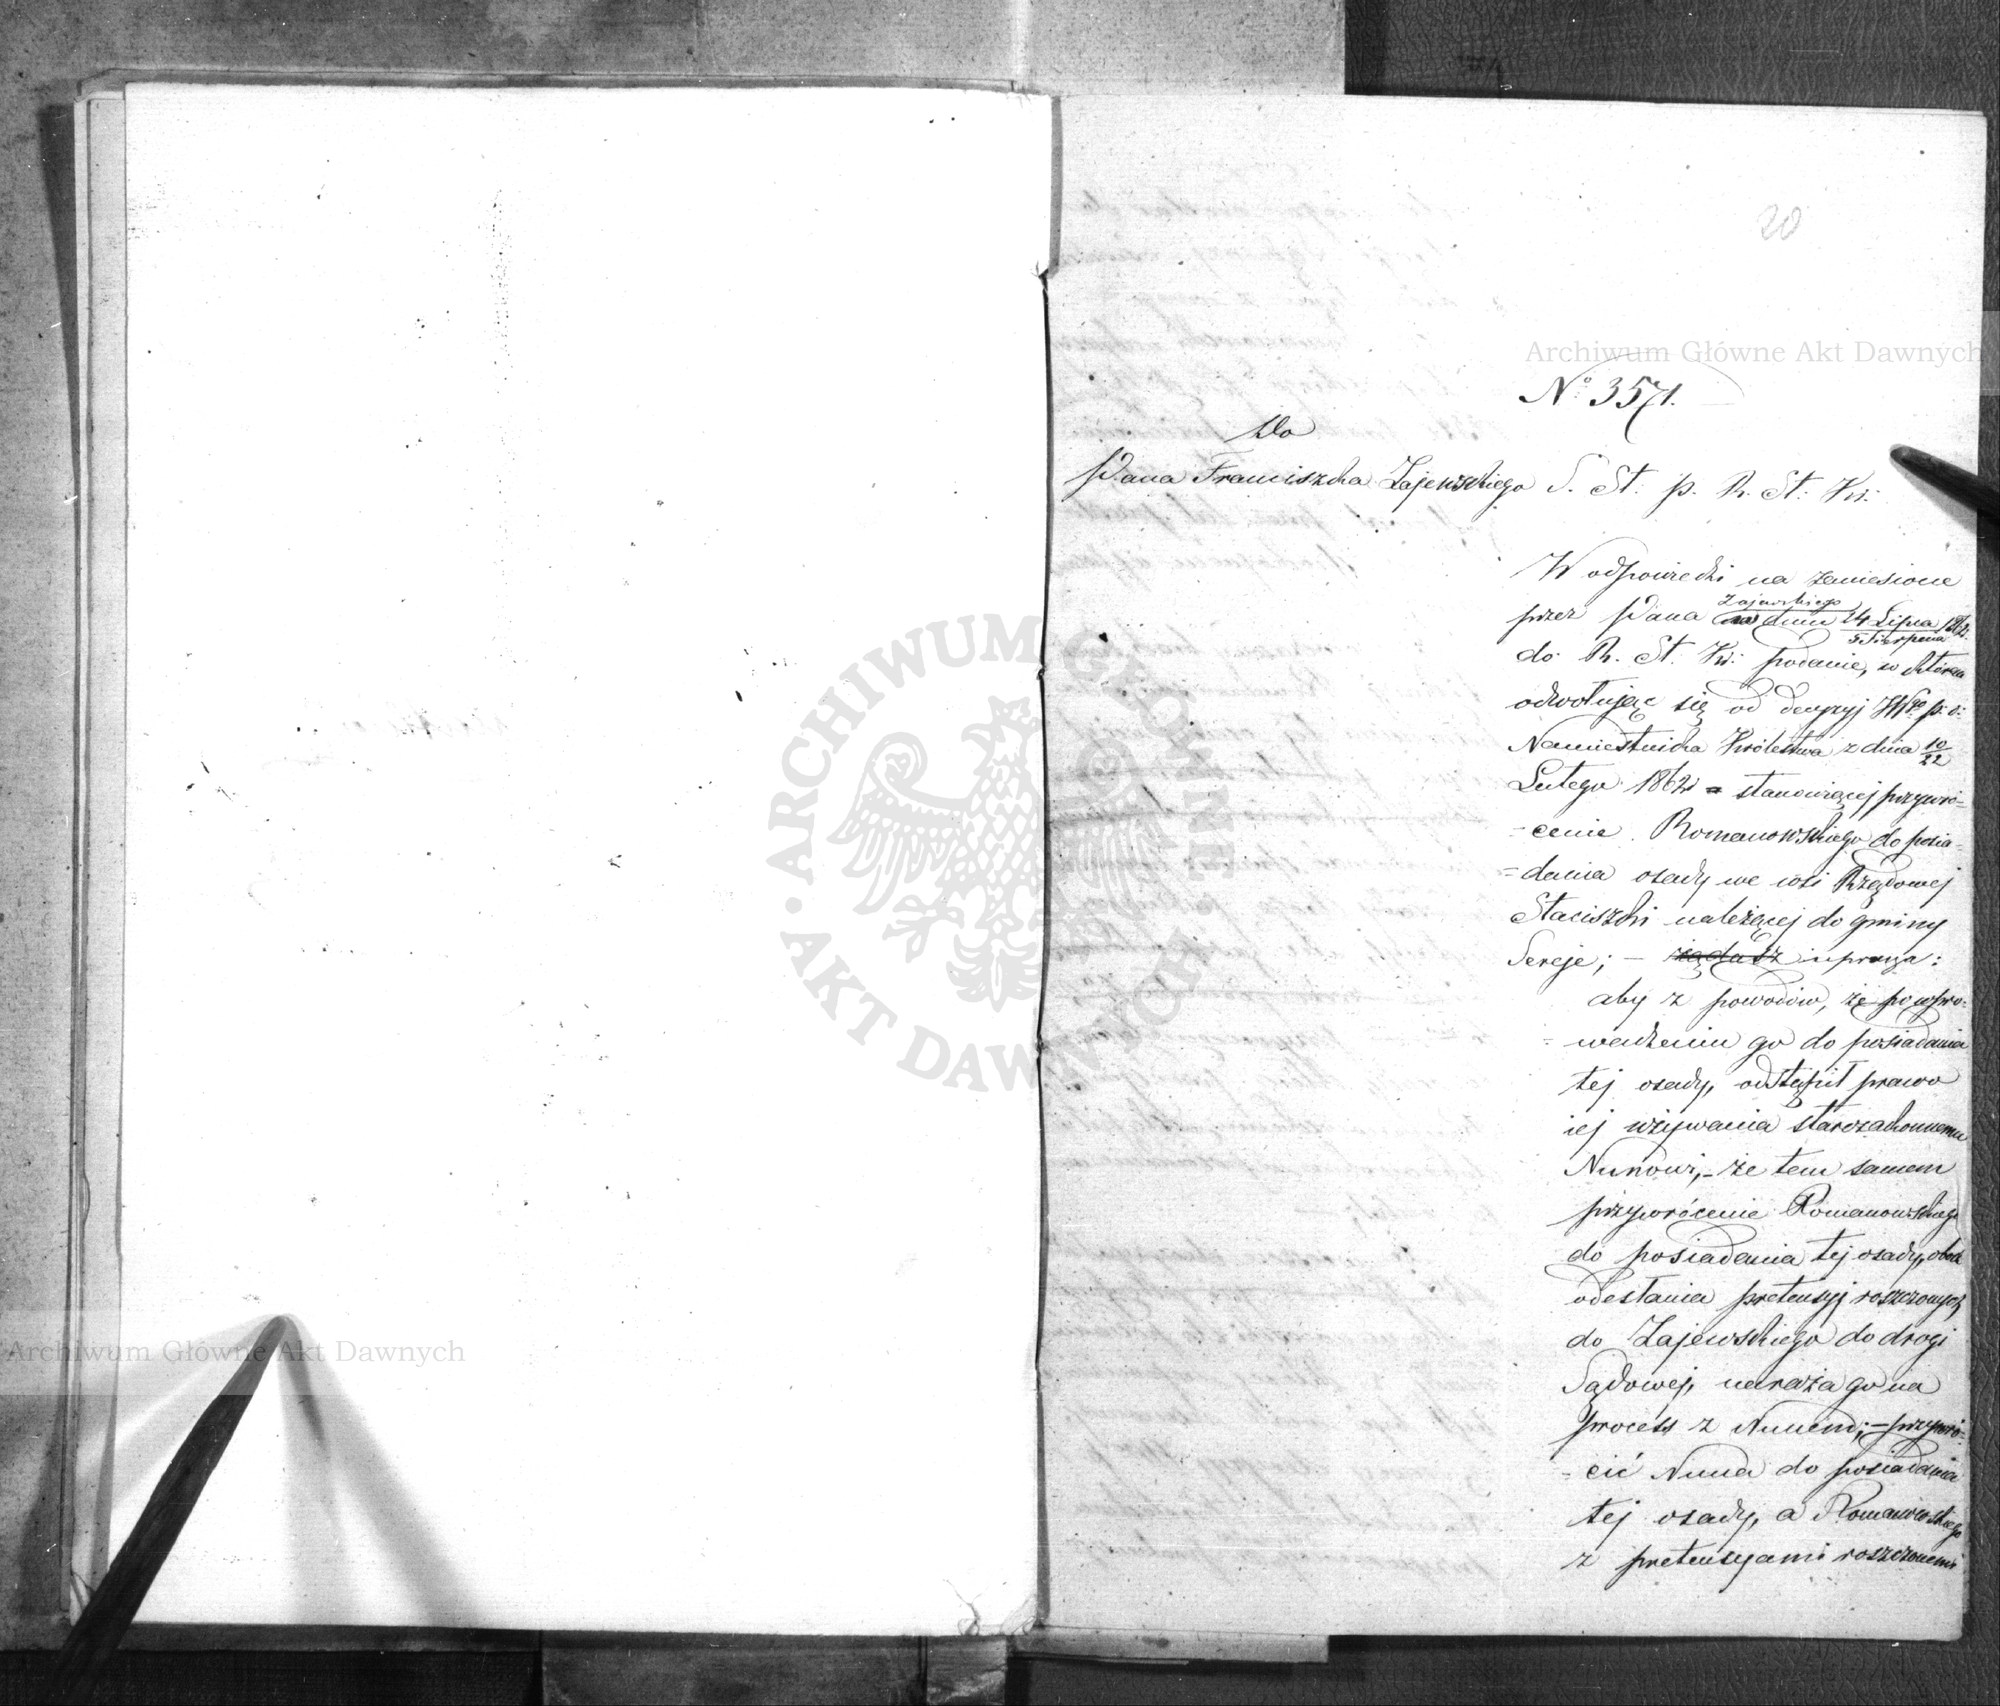 20
Archiwum Główne Akt Dawnych
№ 3571.
Do
Pana Franciszka Zajewskiego S. St: p. R. St: Kr:
W odpowiedzi na zaniesione
przez Pana Zajewskiego dniu 24 Lipca / 5 Sierpnia 1862
do R. St. Kr: podanie, w którem
odwołując się od decyzyj JWgo p. o:
Namiestnika Królestwa z dnia 10/22
Lutego 1862 stanowiącej przywró-
-cenie Romanowskiego do posia-
=dania osady we wsi Rządowej
Staciszki należącej do gminy
Sereje; – żądasz uprasza:
aby z powodów, że po wpro-
=wadzeniu go do posiadania
tej osady, odstąpił prawo
jej używania starozakonnemu
Nunowi, – że tem samem
przywrócenie Romanowskiego
do posiadania tej osady, obok
odesłania pretensyj roszczonych
do Zajewskiego do drogi
Sądowej, naraża go na
process z Nunem; – przywró-
-cić Nuna do posiadania
tej osady, a Romanowskiego
z pretensyami roszczonemi
ARCHIWUM GŁÓWNE AKT DAWNYCH
Archiwum Główne Akt Dawnych